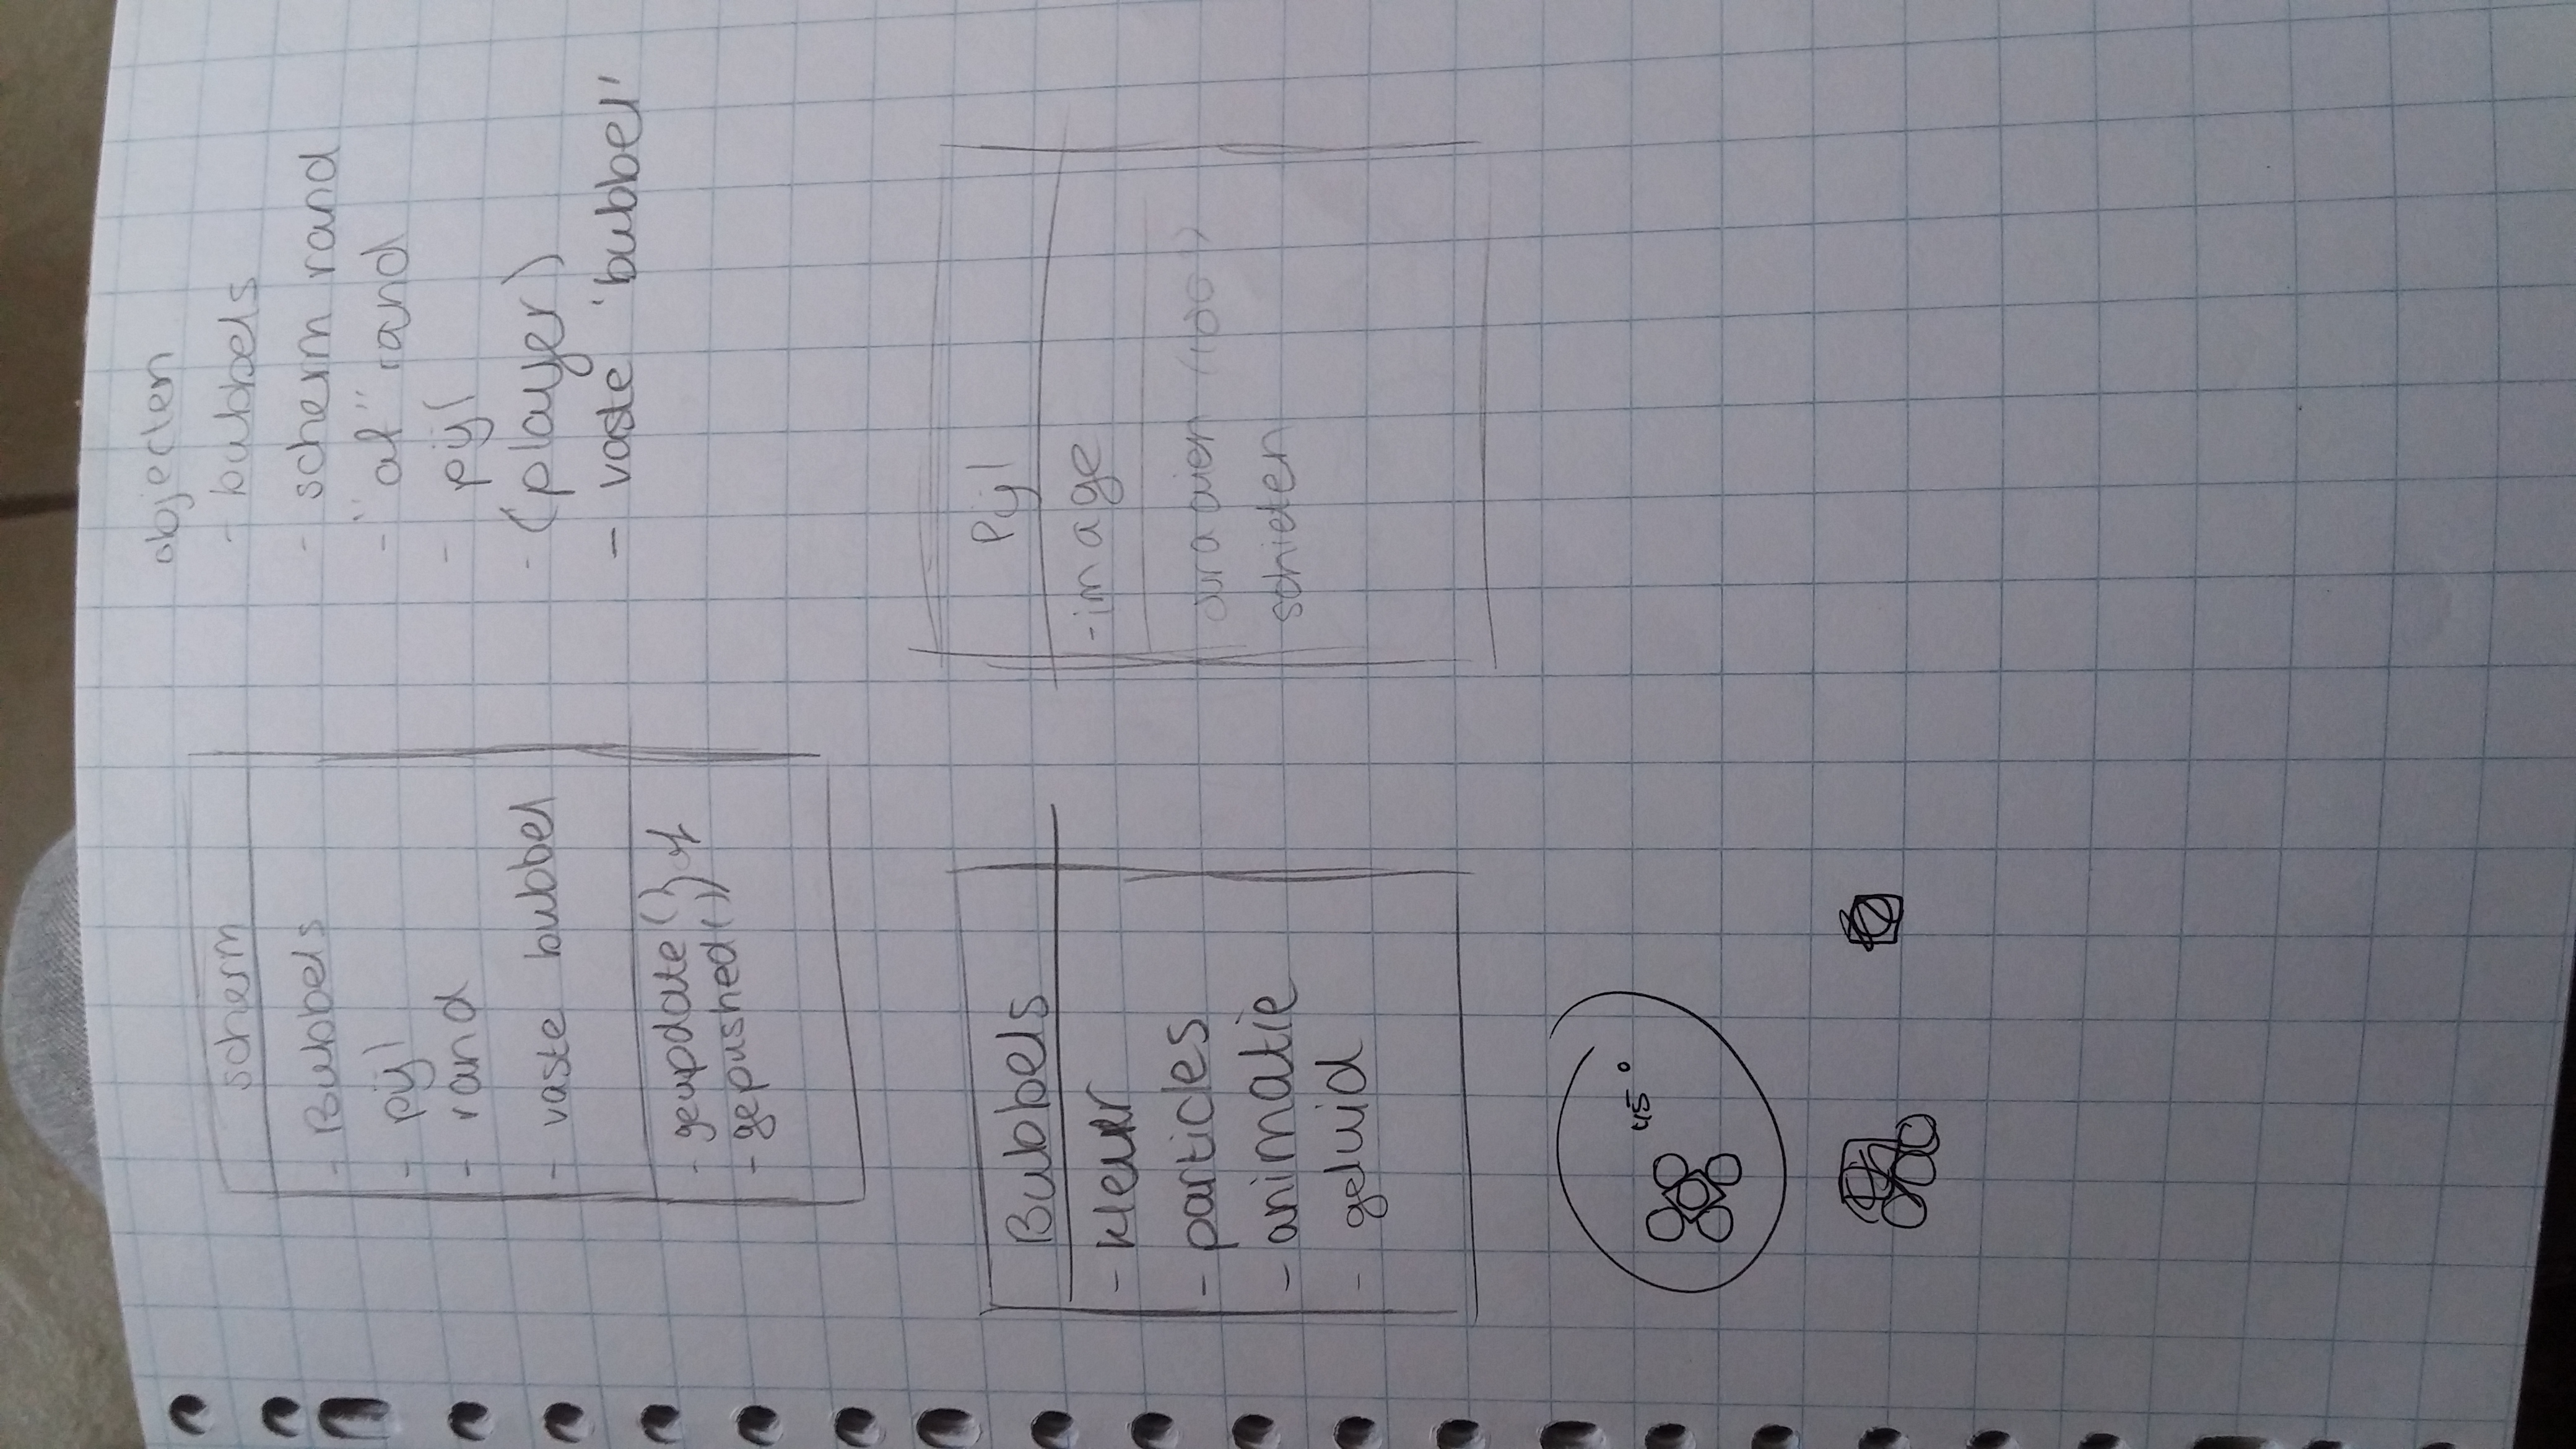 scherm
- Bubbels
- pijl
- rand
- vaste bubbel
- geupdate() } of
- gepushed()
objecten
- bubbels
- scherm rand
- "af" rand
- pijl
- (player)
- vaste 'bubbel'
Bubbels
- kleur
- particles
- animatie
- geluid
Pijl
- image
schieten
45°